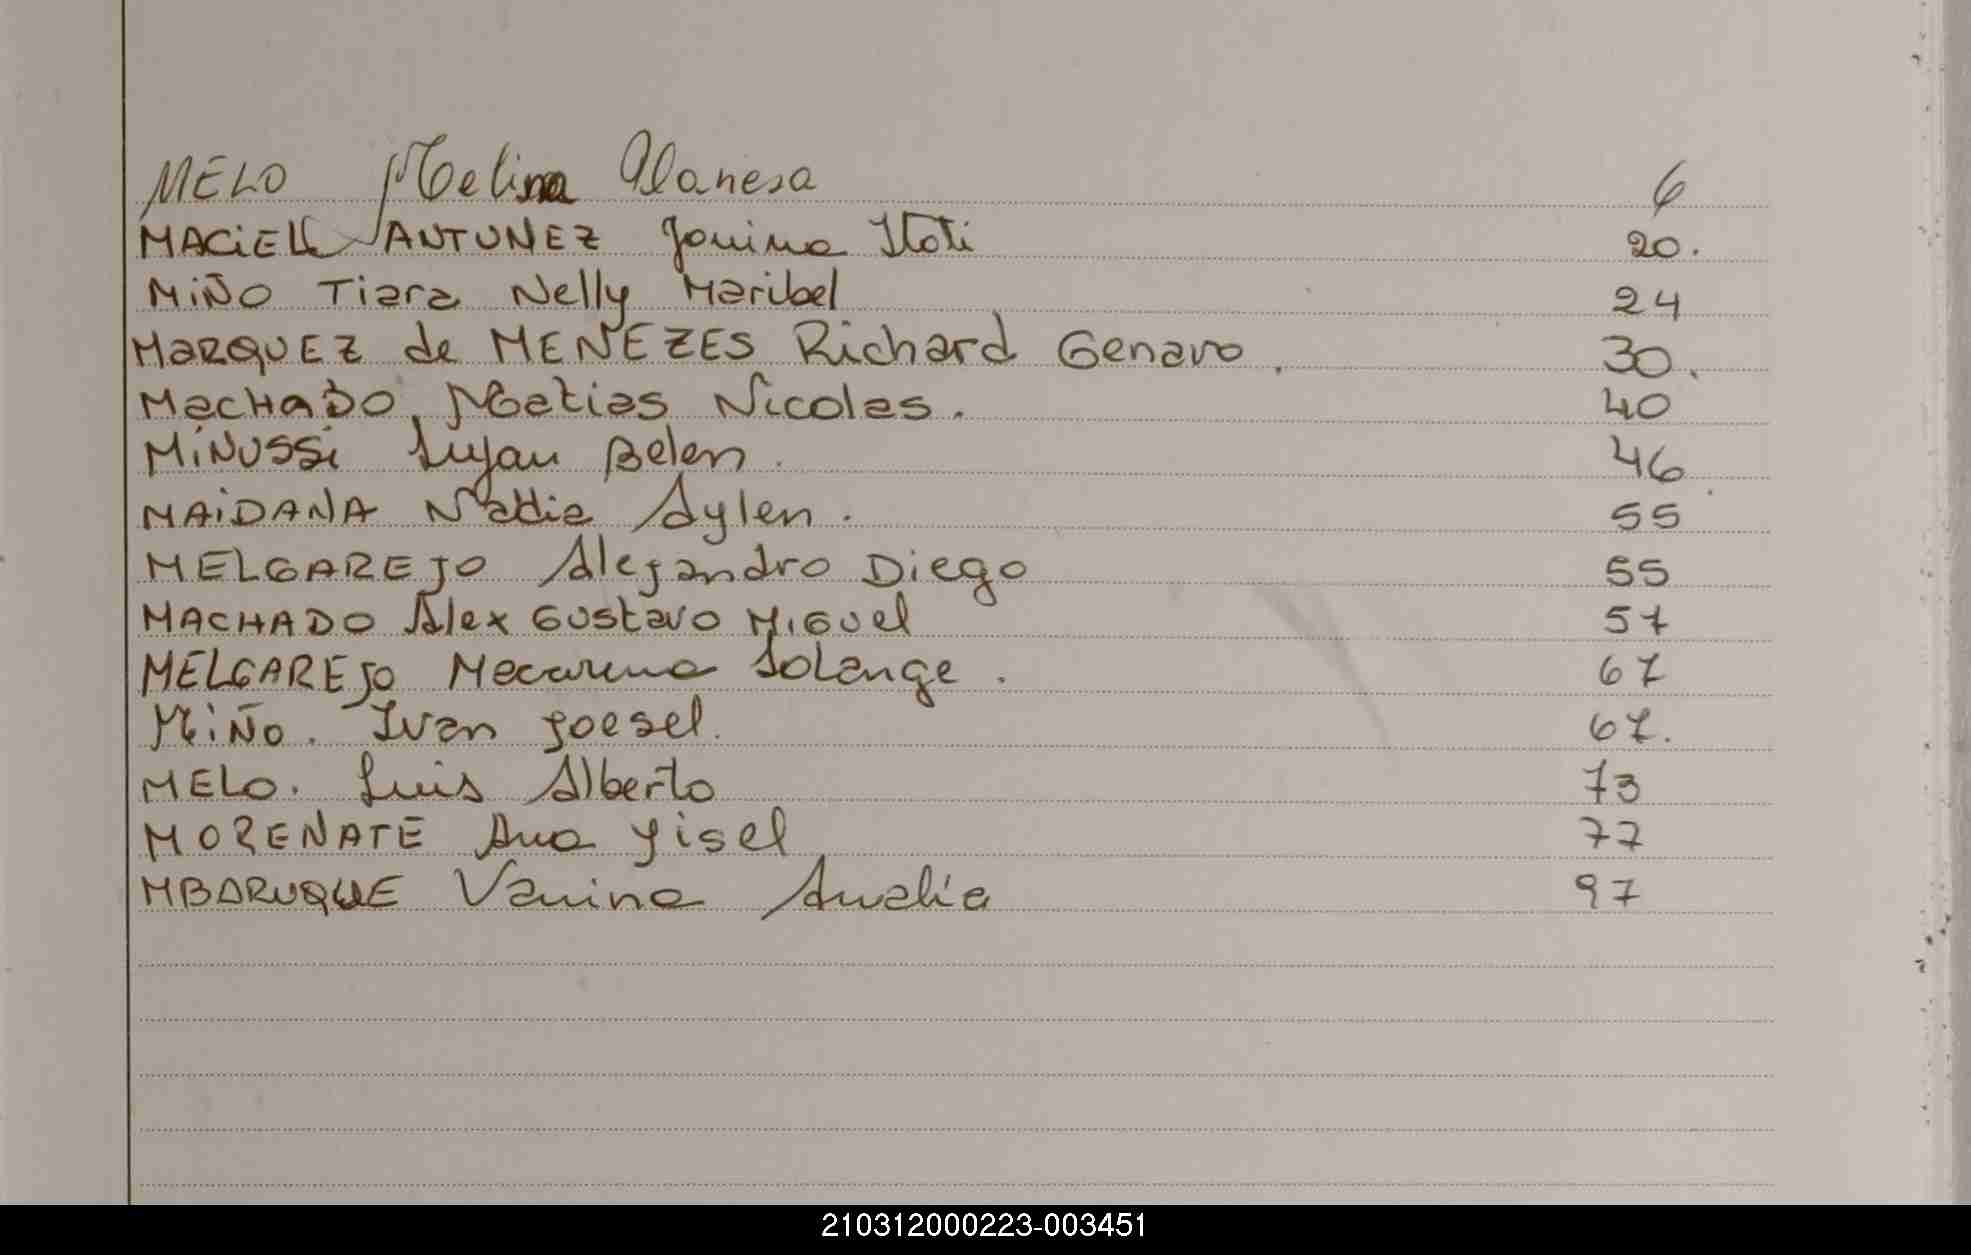 MELO Melina Vanesa 6
MACiEL ANTUNEZ Janina Itati 20.
MiÑO Tiara Nelly Maribel 24
MaRQUEZ de MENEZES Richard Genaro. 30.
MacHaDO, Matias Nicolas. 40
MiNUSSi Lujan Belen. 46
MAiDANA Nadia Aylen. 55
MELGAREJO Alejandro Diego 55
MACHADO Alex Gustavo Miguel 57
MELGAREJO Macarena Solange. 67
MiÑo. Ivan Joesel. 67.
MELO. Luis Alberto 73
MORENATE Ana Jisel 77
MBARUQUE Vanina Amalia 97
210312000223-003451